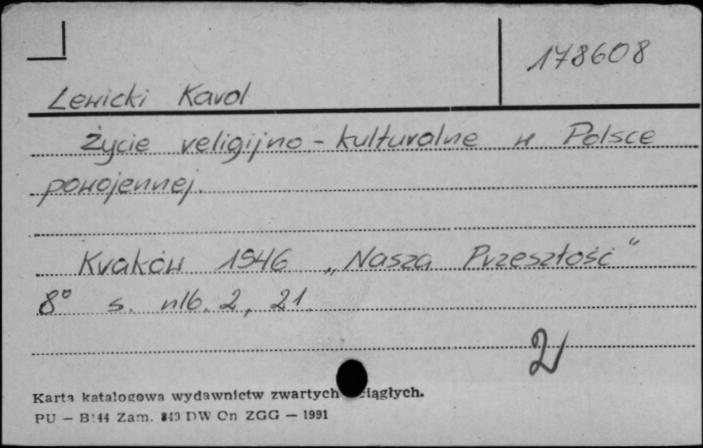 178608
Lewicki Karol
Życie religijno-kulturalne w Polsce
powojennej.
Kraków 1946 „Nasza Przeszłość"
8° s. nlb. 2, 21.
2
Karta katalogowa wydawnictw zwartych ciągłych.
PU — B144 Zam. DW Cn ZGG — 1991